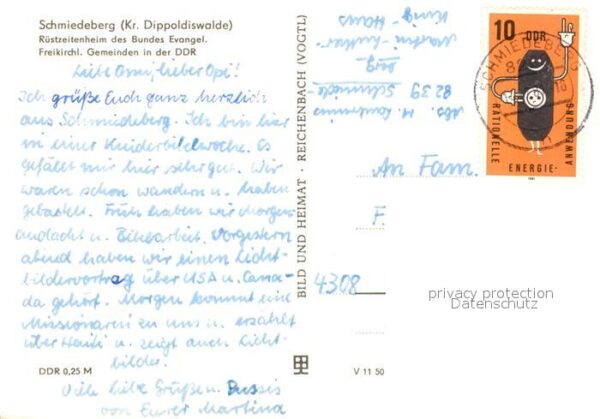 Schmiedeberg (Kr. Dippoldiswalde)
Rüstzeitenheim des Bundes Evangel.
Freikirchl. Gemeinden in der DDR
Liebe Omi, lieber Opi!
Ich grüße Euch ganz herzlich
aus Schmideberg. Ich bin hier
in einer Kinderbibelwoche. Es
gefällt mir hier sehr gut. Wir
waren schon wandern u. haben
gebastelt. Früh haben wir Morgen-
andacht u. Bibelarbeit. Vorgestern
abend haben wir einen Licht-
bildervortrag über USA u. Cana-
da gehört. Morgen kommt eine
Missionarin zu uns u. erzählt
über Haiti u. zeigt auch Licht-
bilder.
Viele liebe Grüße u. Bussis
von Eurer Martina
DDR 0,25 M
V 11 50
BILD UND HEIMAT · REICHENBACH (VOGTL)
Abs. M.
8239 Schmiede-
berg
Martin-Luther-
King-Haus
An Fam.
F.
4308
10 DDR
RATIONELLE ENERGIE-ANWENDUNG
1981
SCHMIEDEBERG
privacy protection
Datenschutz